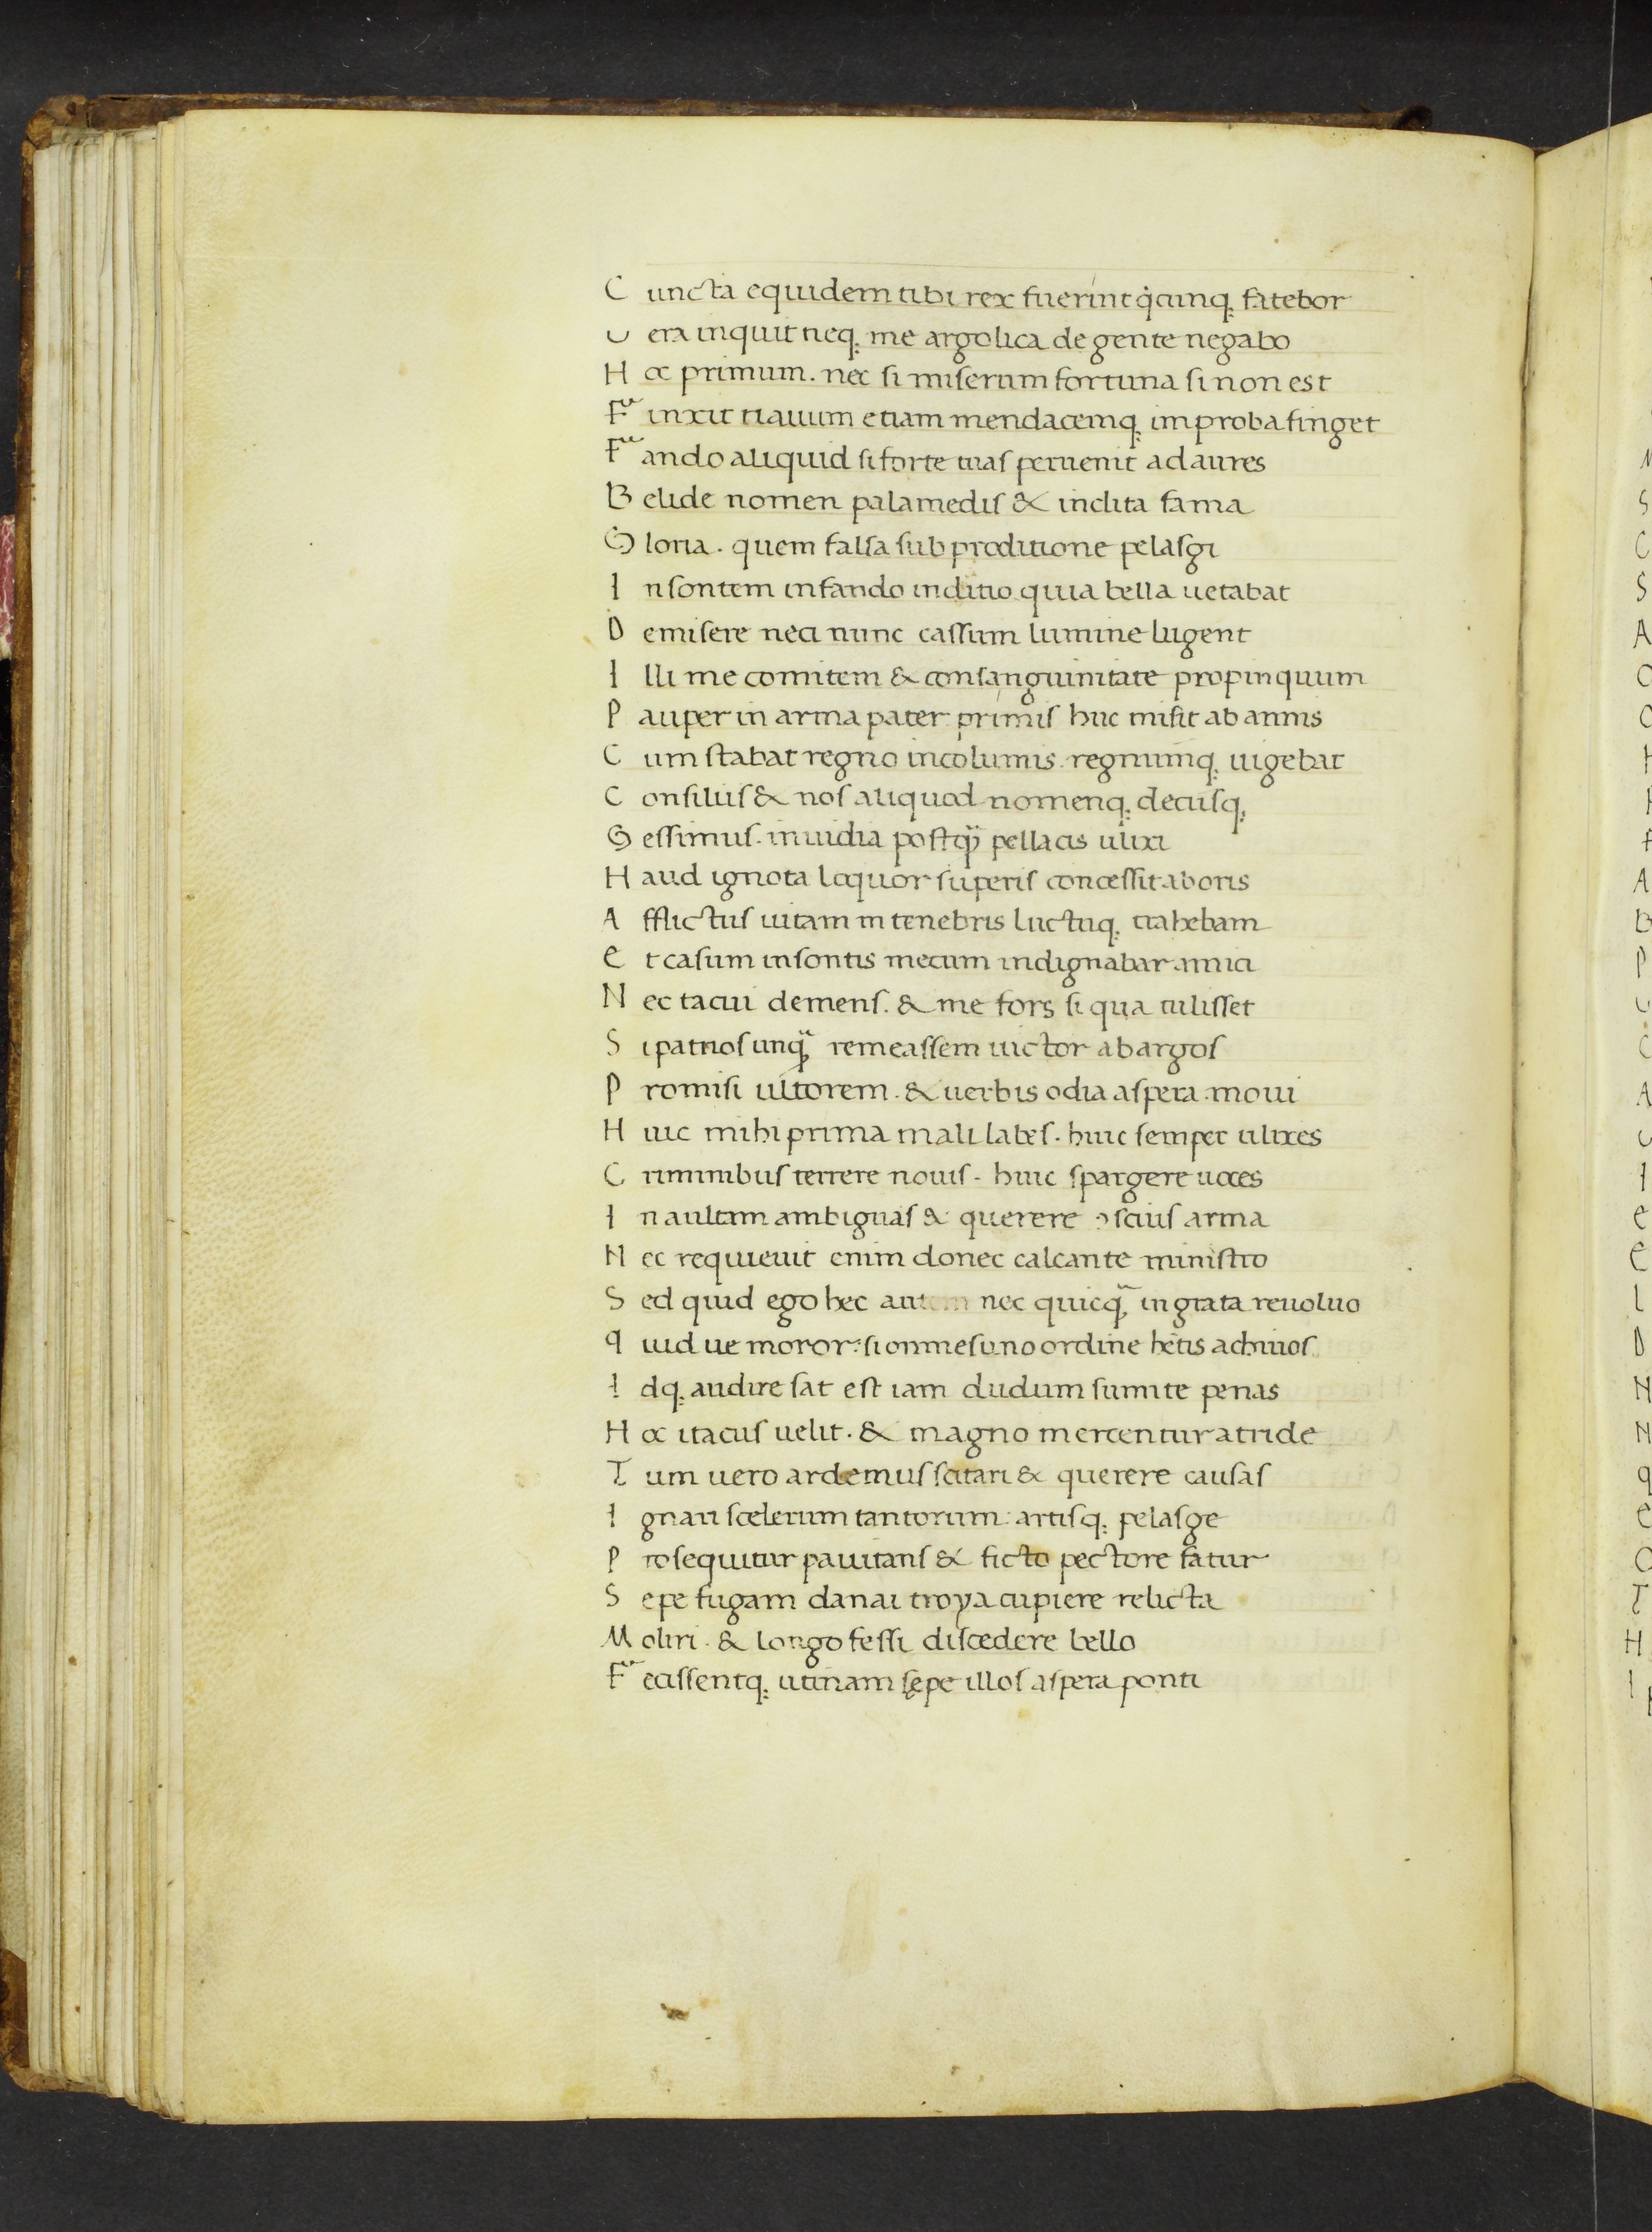 C uncta equidem tibi rex fuerint q̇cunq; fatebor
U era inquit neq; me argolica de gente negabo
H oc primum. nec si miserum fortuna sinonest
F inxit uauum etiam mendacemq; improba finget
F ando aliquid si forte tuas peruenit ad aures
B elide nomen palamedis & inclita fama
G loria. quem falsa sub proditione pelasgi
I nsontem infando inditio quia bella uetabat
D emisere neci nunc cassum lumine lugent
I lli me comitem & consanguinitate propinquum
P auper in arma pater primis huc misit ab annis
C um stabat regno incolumis regnumq; uigebat
C onsiliis & nos aliquod nomenq; decusq;
G essimus. inuidia postq̃ pellacis ulixi
H aud ignota loquor superis concessit aboris
A fflictus uitam in tenebris luctuq; trahebam
E t casum insontis mecum indignabar amici
N ec tacui demens. & me fors si qua tulisset
S i patrios unq̃ remeassem uictor ab argos
P romisi ultorem. & uerbis odia aspera moui
H uic mihi prima mali labes. huic semper ulixes
C riminibus terrere nouis. huic spargere uoces
I n uultum ambiguas & querere ↄscius arma
N ec requieuit enim donec calcante ministro
S ed quid ego hec autem nec quicq̃ ingrata reuoluo
q uid ue moror: si omnes uno ordine hetis achiuos
I dq; audire sat est iam dudum sumite penas
H oc itacus uelit. & magno mercentur atride
T um uero ardemus scitari & querere causas
I gnari scelerum tantorum: artisq; pelasge
P rosequitur pauitans & ficto pectore fatur
S epe fugam danai troya cupiere relicta
M oliri. & longo fessi discedere bello
F ecissentq; utinam sępe illos aspera ponti